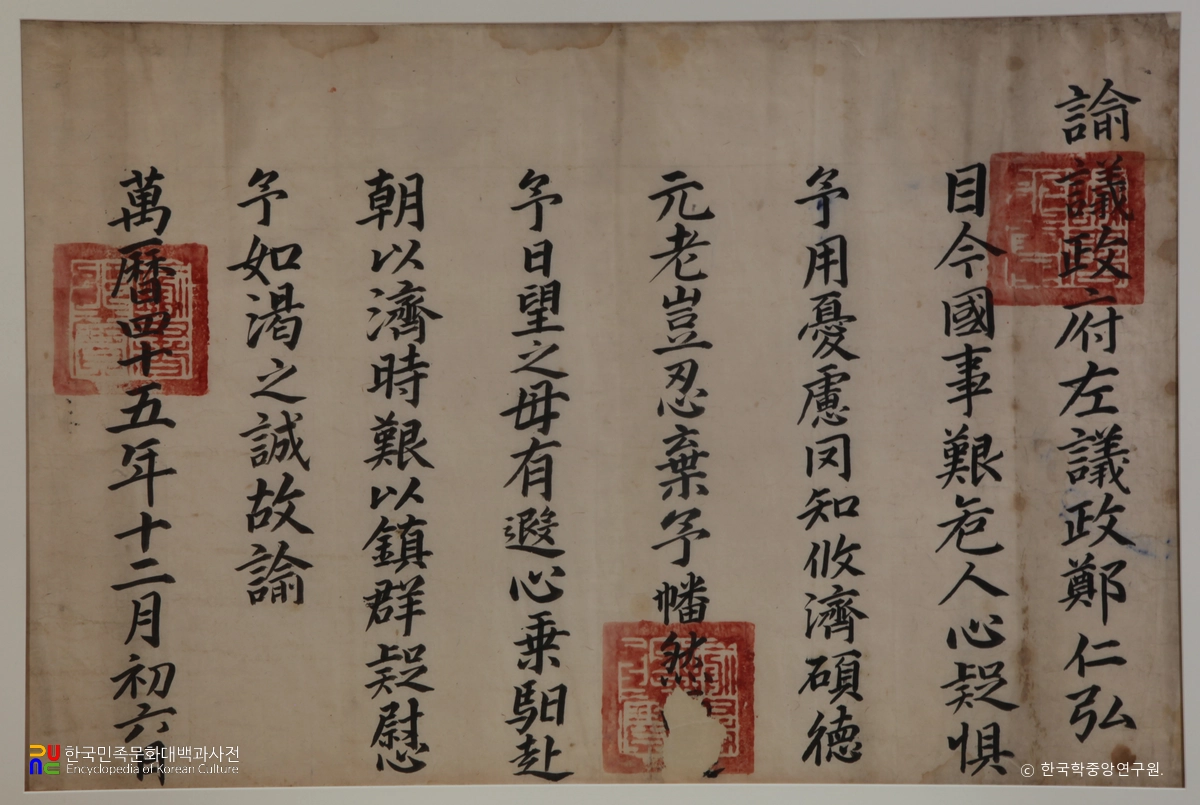 諭議政府左議政鄭仁弘
目今國事艱危人心疑惧
予用憂慮罔知攸濟碩德
元老豈忍棄予幡然
予日望之毋有遐心乗馹赴
朝以濟時艱以鎮群疑慰
予如渇之誠故諭
萬曆四十五年十二月初六日
한국민족문화대백과사전
Encyclopedia of Korean Culture
© 한국학중앙연구원.